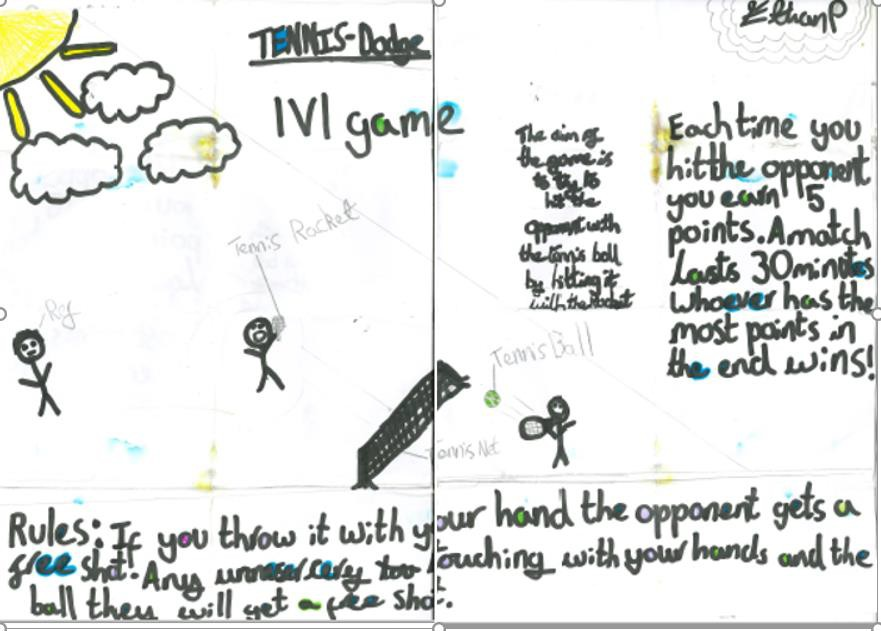 TENNIS-Dodge
EthanP
1V1 game
The aim of
the game is
to try to
hit the
opponent with
the tennis ball
by hitting it
with the Racket
Each time you
hit the opponent
you earn 5
points. A match
Lasts 30 minutes
whoever has the
most points in
the end wins!
Tennis Racket
Ref
Tennis Ball
Tennis Net
Rules: If you throw it with your hand the opponent gets a
free shot. Any touching with your hands and the
ball they will get a free shot.